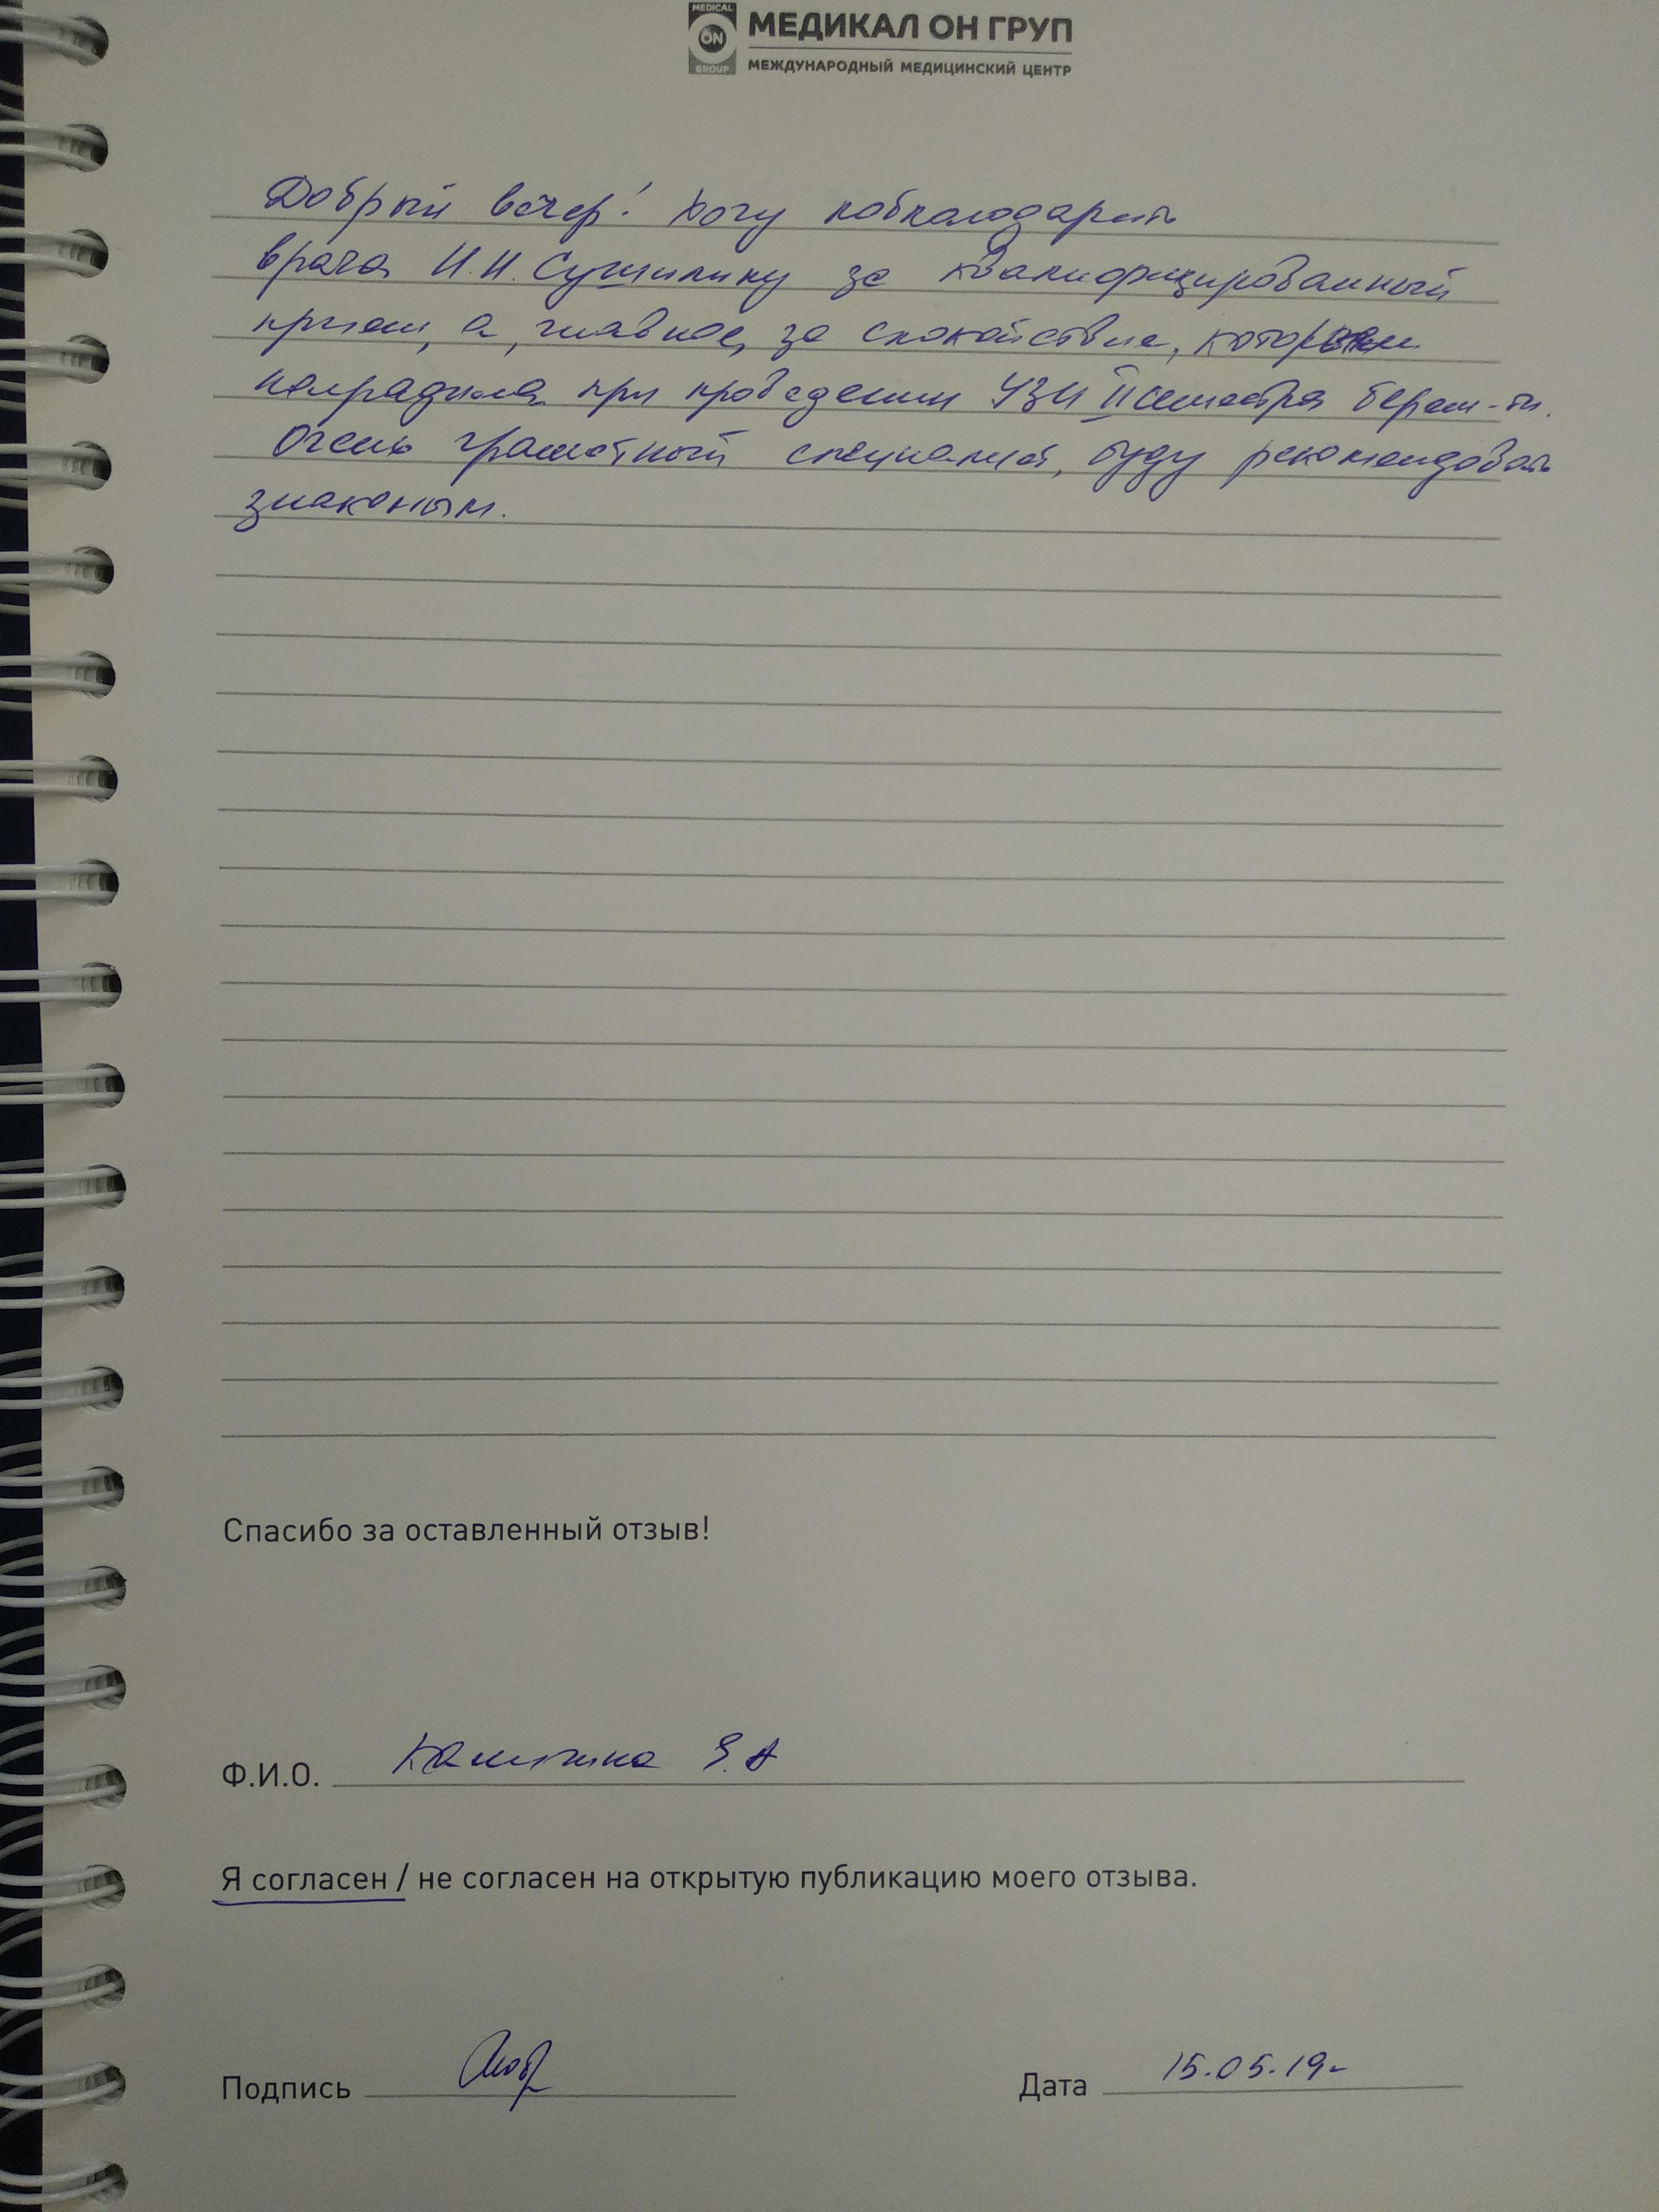 MEDICAL
ON
GROUP
МЕДИКАЛ ОН ГРУП
МЕЖДУНАРОДНЫЙ МЕДИЦИНСКИЙ ЦЕНТР
Добрый вечер! Хочу поблагодарить
врача И.И. за квалифицированный
прием, а, главное, за спокойствие, которым
наградила при проведении УЗИ II семестра берем-ти.
Очень грамотный специалист, буду рекомендовать
знакомым.
Спасибо за оставленный отзыв!
Ф.И.О.
Я согласен / не согласен на открытую публикацию моего отзыва.
Подпись
Дата 15.05.19г